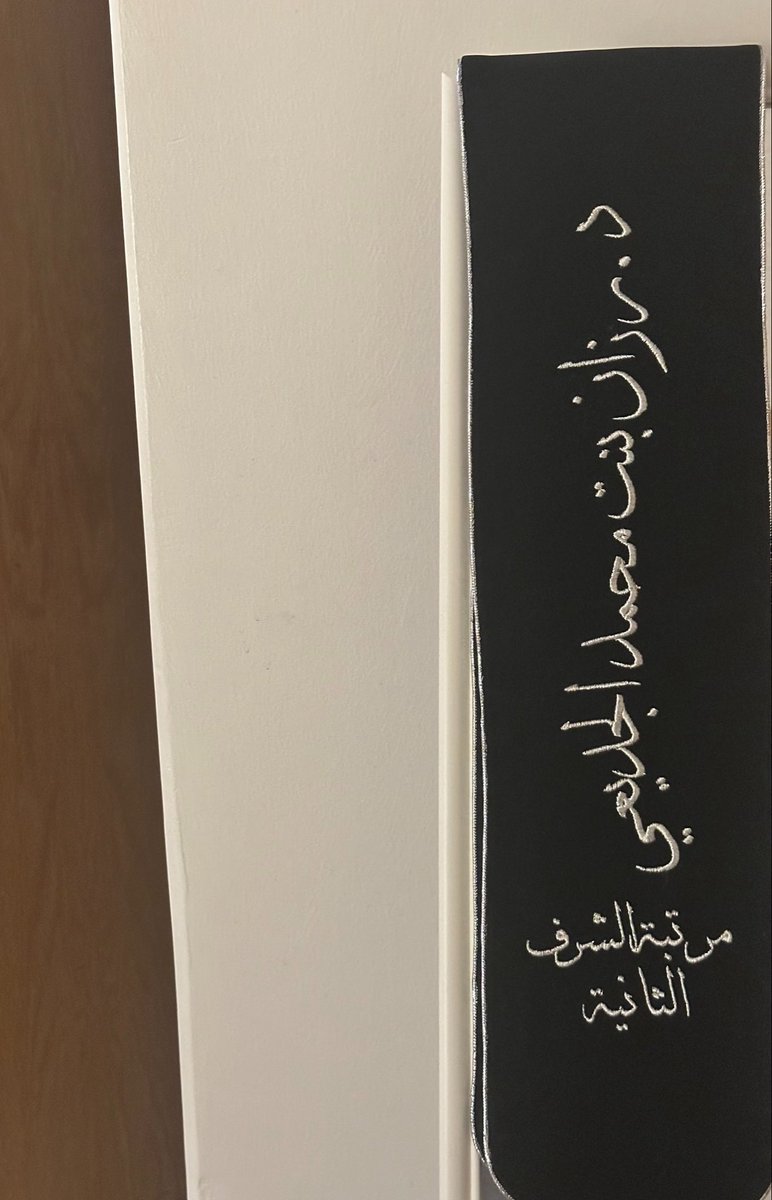 د. رزان بنت محمد الجديعي
مرتبة الشرف
الثانية